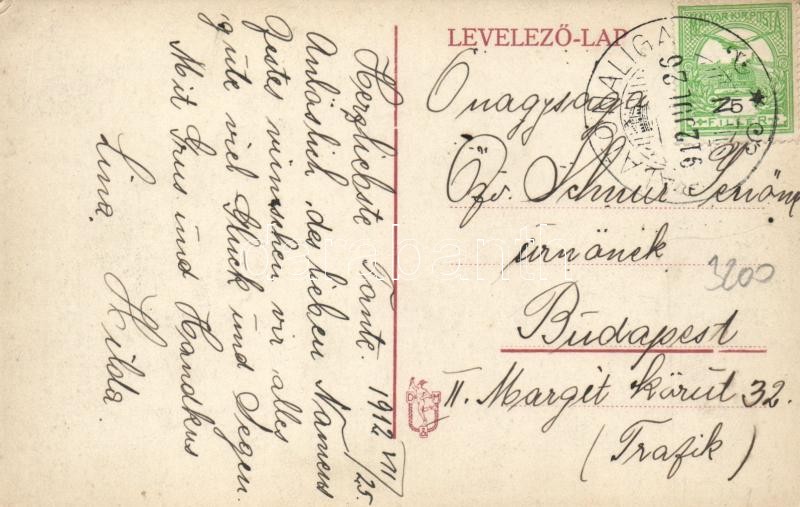 LEVELEZŐ-LAP
MAGYAR KIR. POSTA
25
FILLÉR
ALIGA
912 JUL 26
Herzliebste Tant. 1912 VII/25.
Anläslich des lieben Namens
festes wünschen vir alles
gute viel Glück und Segen.
Mit Grus und Handkus
Lina. Hilda.
Őnagysága
Özv. Schnur Jenőné
úrnőnek
Budapest
II. Margit körút 32.
(Trafik)
3200
darabanth
D M